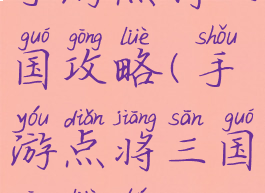 guó gōng lüè shǒu
国攻略(手
yóu diǎn jiāng sān guó
游点将三国